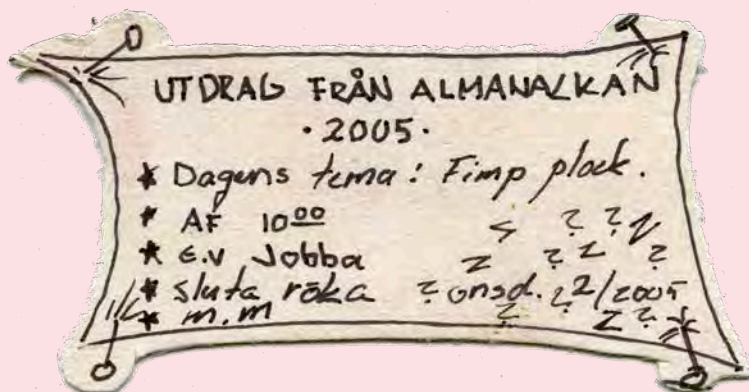 UTDRAG FRÅN ALMANACKAN
· 2005 ·
* Dagens tema : Fimp plock.
* AF 10 00
* E.V Jobba
* sluta röka onsd. 2/2005
* m.m